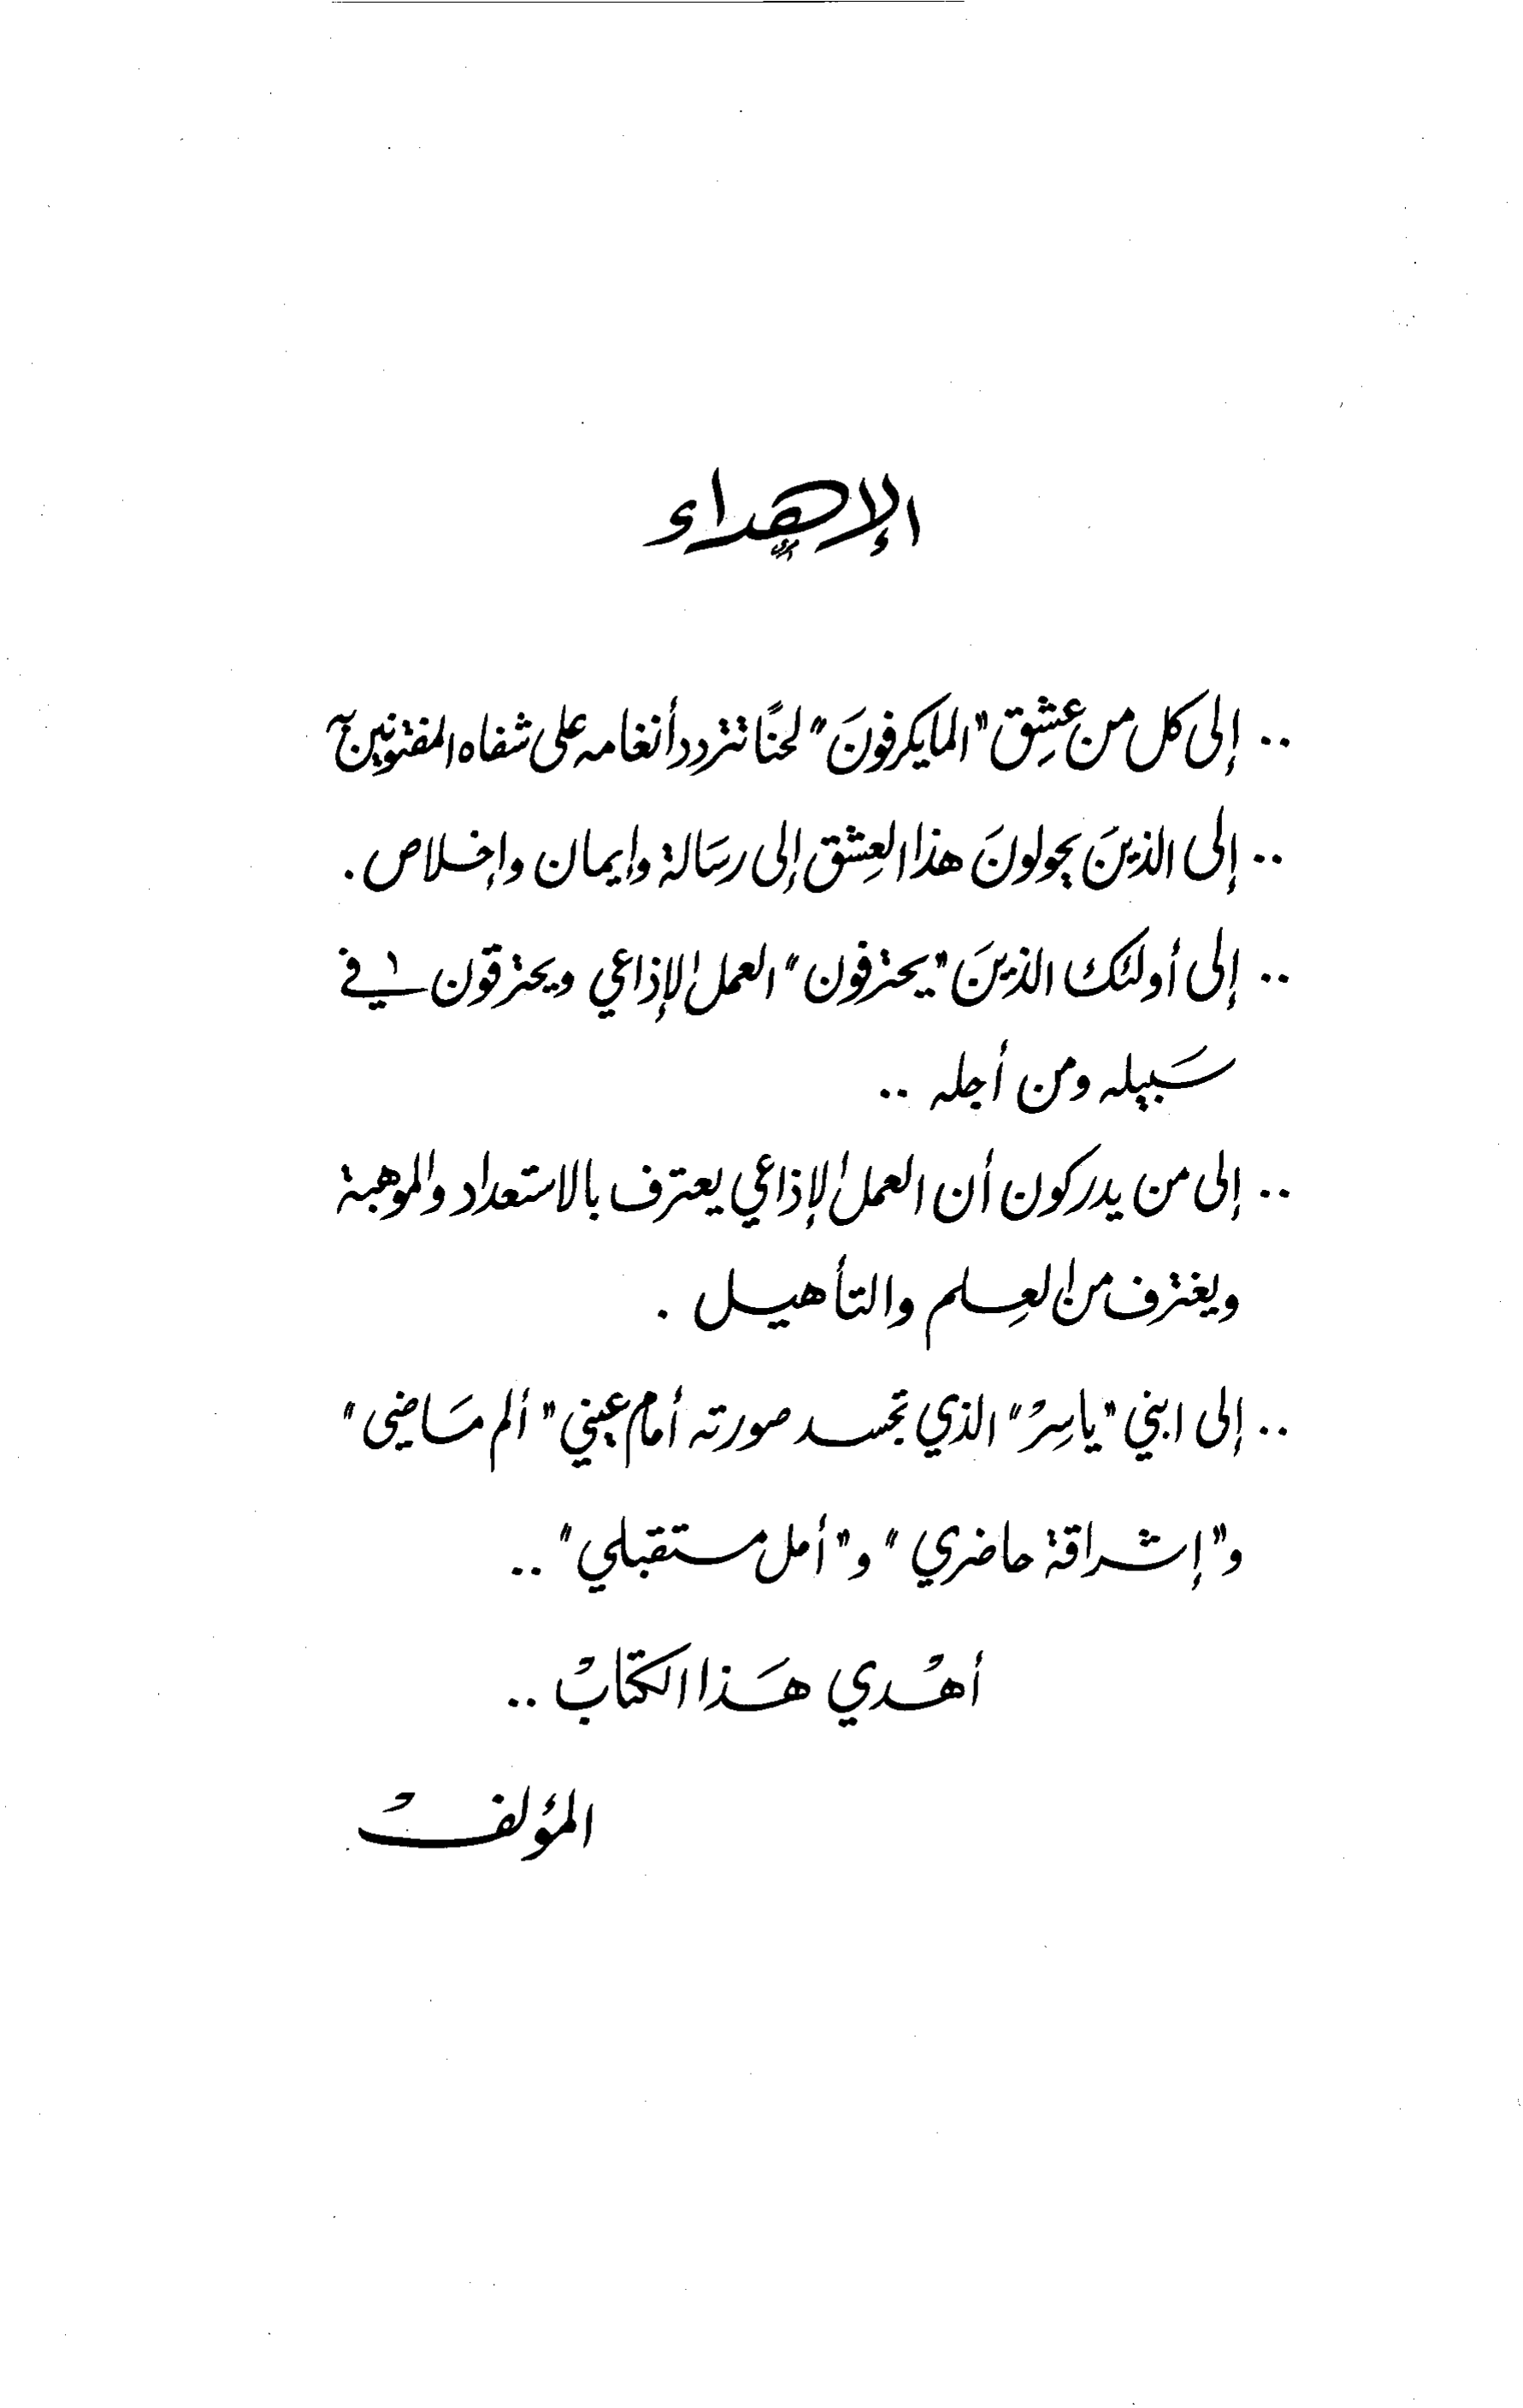 الإهداء
.. إلى كل من عشِق "المايكرفونَ" لحنًا تتردد أنغامه على شفاه المفتونين به
.. إلى الذينَ يحولونَ هذا العِشق إلى رسَالة وإيمان وإخلاص .
.. إلى أولئك الذينَ "يحترفون" العمل الإذاعي ويحترقون في
سَبيله ومن أجله ..
.. إلى من يدركون أن العمل الإذاعي يعترف بالاستعداد والموهبة
ويغترف من العِلم والتأهيل .
.. إلى ابني "ياسِرْ" الذي تجسد صورته أمام عيني "ألم مَاضيى"
و"إشراقة حاضري" و"أمل مستقبلي" ..
أهْدي هَذا الكتابْ ..
المؤلفْ